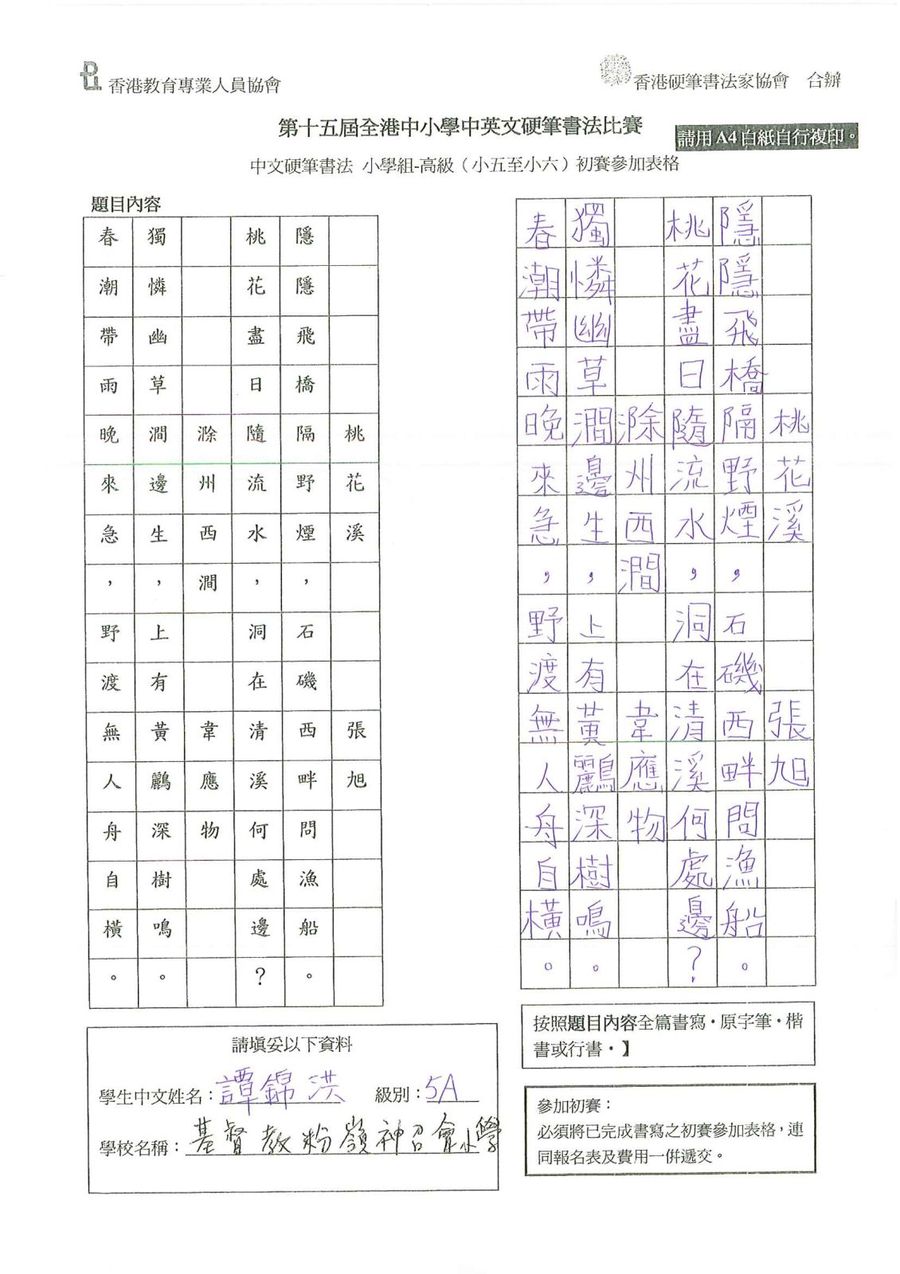 香港教育專業人員協會
香港硬筆書法家協會 合辦
第十五屆全港中小學中英文硬筆書法比賽
請用 A4 白紙自行複印。
中文硬筆書法 小學組-高級（小五至小六）初賽參加表格
題目內容
桃花溪 張旭
隱隱飛橋隔野煙，石磯西畔問漁船。
桃花盡日隨流水，洞在清溪何處邊？
滁州西澗 韋應物
獨憐幽草澗邊生，上有黃鸝深樹鳴。
春潮帶雨晚來急，野渡無人舟自橫。
桃花溪 張旭
隱隱飛橋隔野煙，石磯西畔問漁船。
桃花盡日隨流水，洞在清溪何處邊？
滁州西澗 韋應物
獨憐幽草澗邊生，上有黃鸝深樹鳴。
春潮帶雨晚來急，野渡無人舟自橫。
請填妥以下資料
學生中文姓名：譚錦洪 級別：5A
學校名稱：基督教粉嶺神召會小學
按照題目內容全篇書寫，原字筆，楷
書或行書。】
參加初賽：
必須將已完成書寫之初賽參加表格，連
同報名表及費用一併遞交。